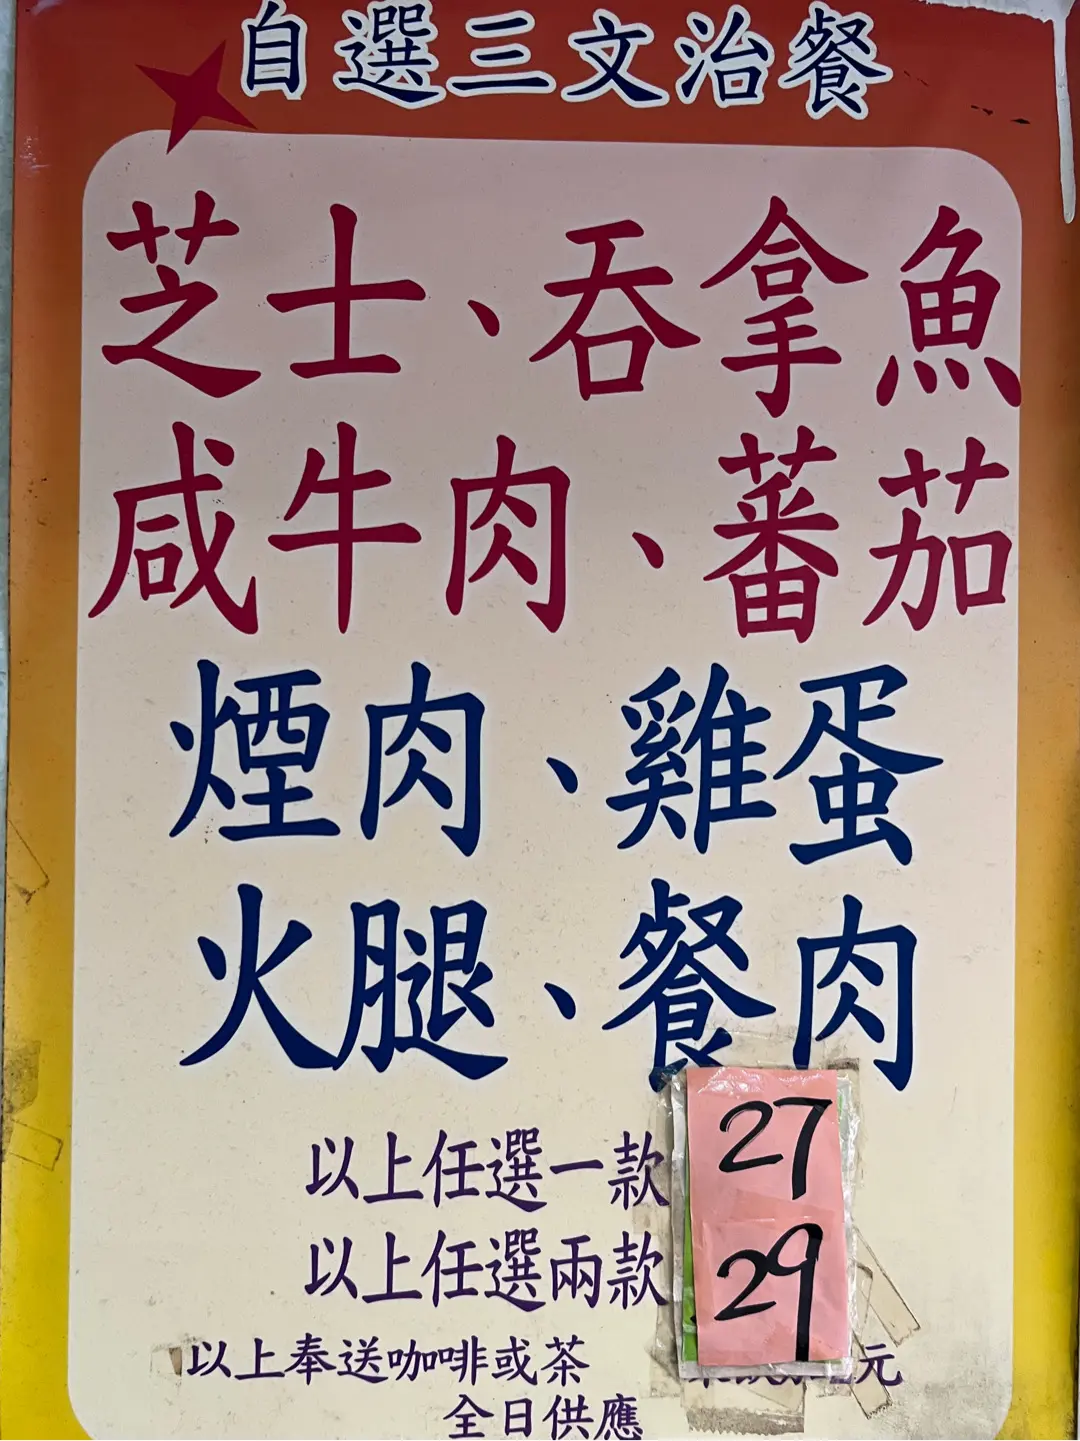 自選三文治餐
芝士、吞拿魚
咸牛肉、蕃茄
煙肉、雞蛋
火腿、餐肉
以上任選一款 27
以上任選兩款 29
以上奉送咖啡或茶 元
全日供應